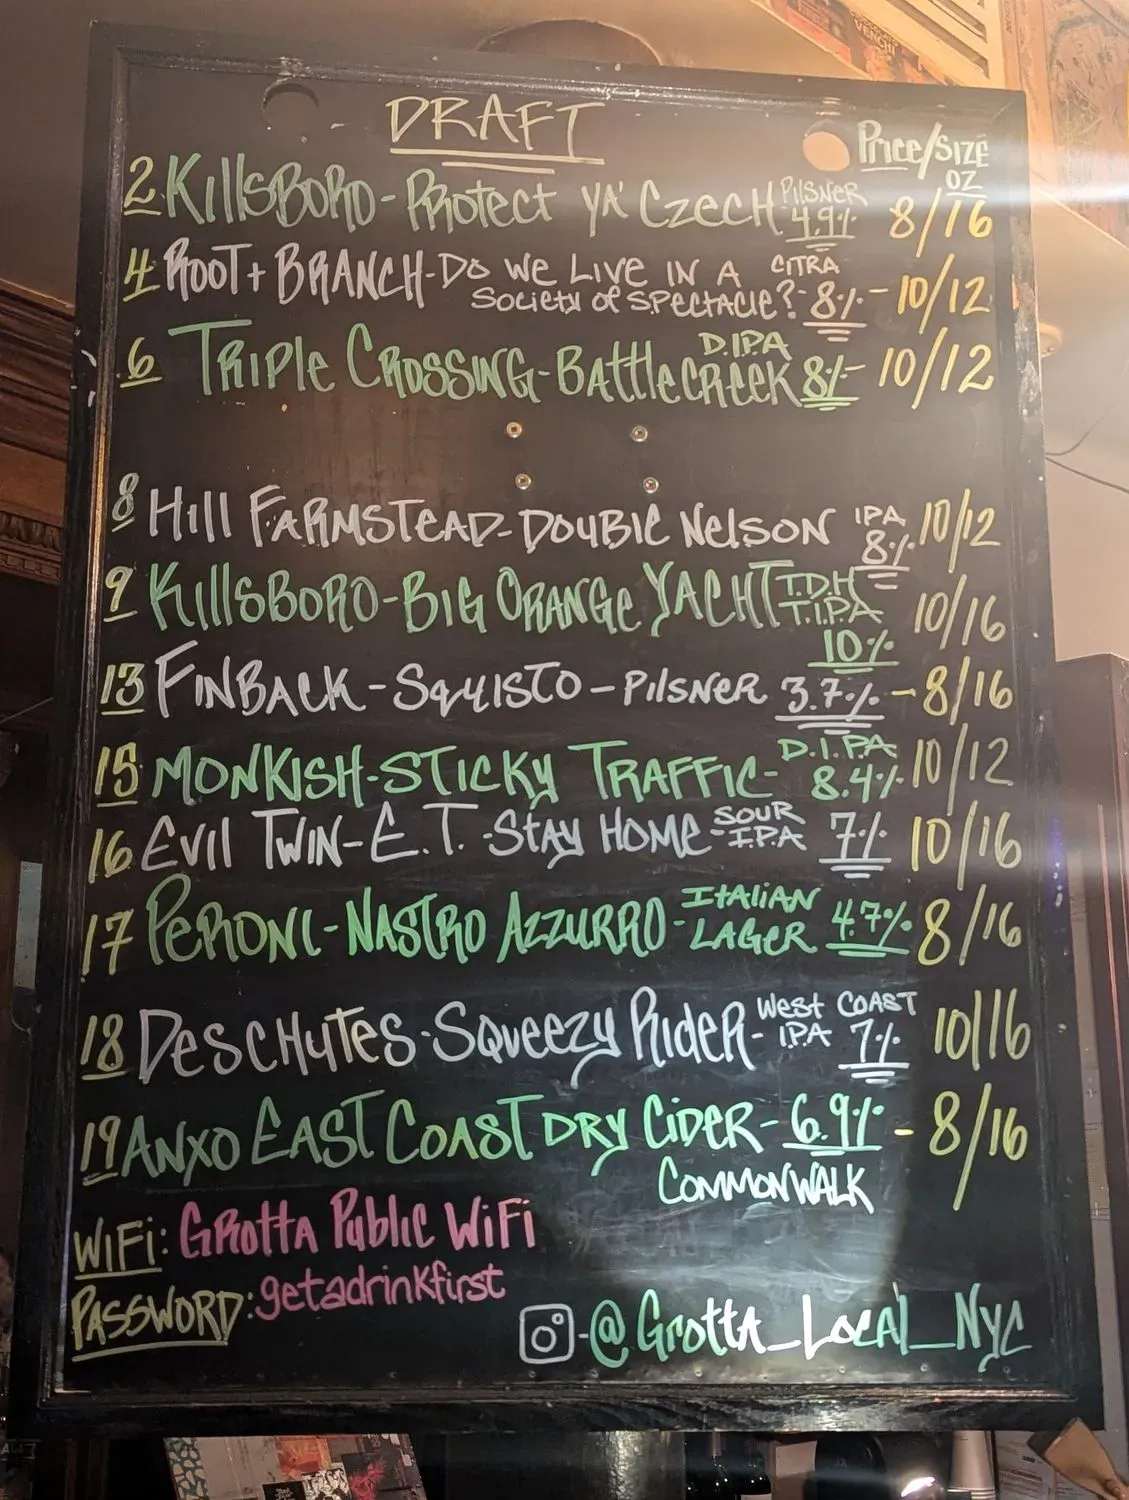 DRAFT
Price/SIZE
OZ
2 KillsBoro - Protect YA' Czech PILSNER 4.9% 8/16
4 ROOT + BRANCH - Do WE LIVE IN A CITRA
Society of SPECTACLE? - 8% - 10/12
6 TRIPle CROSSING - BAttleCReek D.I.PA 8% - 10/12
8 Hill FARMSTEAD - DOUBLE NelSON IPA 8% 10/12
9 KillsBoRO - BIG ORANGe YACHT T.D.H T.I.PA 10/16
10%
13 FINBACK - SQUISTO - PILSNER 3.7% - 8/16
15 MONKISH - STICKY TRAFFIC - D.I.PA 8.4% 10/12
16 EVIL TWIN - E.T. - STAY HOMe - SOUR I.P.A 7% 10/16
17 PERONI - NASTRO AZZURRO - ITALIAN LAGER 4.7% 8/16
18 DESCHUTES - Squeezy RIDER - West COAST IPA 7% 10/16
19 ANXO EAST COAST DRY CIDER - 6.9% - 8/16
COMMONWALK
WIFI: GROttA Public WiFi
PASSWORD: getadrinkfirst
@Grotta_Local_Nyc
VENCHI